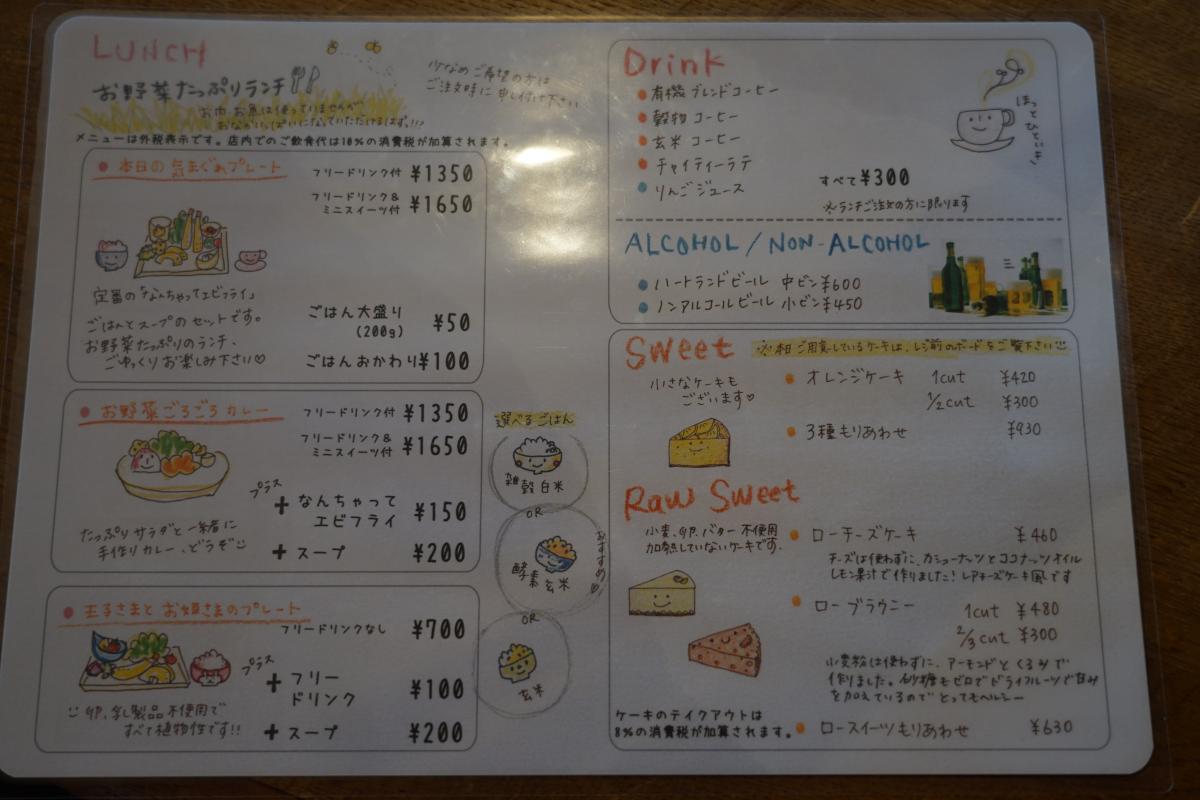 LUNCH
お野菜たっぷりランチ
お肉お魚は使っていませんが
おなかいっぱいになっていただけるはず!!!
少なめご希望の方は
ご注文時に申し付け下さい
メニューは外税表示です。店内でのご飲食代は10%の消費税が加算されます。
本日の気まぐれプレート
フリードリンク付 ¥1350
フリードリンク&
ミニスイーツ付 ¥1650
定番の「なんちゃってエビフライ」
ごはんとスープのセットです。
お野菜たっぷりのランチ、
ごゆっくりお楽しみ下さい♡
ごはん大盛り
(200g) ¥50
ごはんおかわり ¥100
お野菜ごろごろカレー
フリードリンク付 ¥1350
フリードリンク&
ミニスイーツ付 ¥1650
たっぷりサラダと一緒に
手作りカレー、どうぞ
プラス
+ なんちゃって
エビフライ ¥150
+ スープ ¥200
王子さまとお姫さまのプレート
フリードリンクなし ¥700
プラス
+ フリー
ドリンク ¥100
+ スープ ¥200
卵、乳製品不使用で
すべて植物性です!!
選べるごはん
雑穀白米
OR
酵素玄米
おすすめ♡
OR
玄米
Drink
有機ブレンドコーヒー
穀物コーヒー
玄米コーヒー
チャイティーラテ
りんごジュース
すべて¥300
※ランチご注文の方に限ります
ほっとひといき
ALCOHOL / NON-ALCOHOL
ハートランドビール 中ビン¥600
ノンアルコールビール 小ビン¥450
Sweet
※本日ご用意しているケーキは、レジ前のボードをご覧下さい
小さなケーキも
ございます♡
オレンジケーキ 1cut ¥420
1/2cut ¥300
3種もりあわせ ¥930
Raw Sweet
小麦、卵、バター不使用
加熱していないケーキです.
ローチーズケーキ ¥460
チーズは使わずに、カシューナッツとココナッツオイル
レモン果汁で作りました!レアチーズケーキ風です
ローブラウニー 1cut ¥480
2/3cut ¥300
小麦粉は使わずに、アーモンドとくるみで
作りました。砂糖もゼロでドライフルーツで甘み
を加えているのでとってもヘルシー
ロースイーツもりあわせ ¥630
ケーキのテイクアウトは
8%の消費税が加算されます。